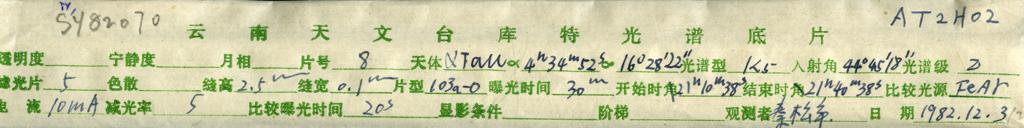 SY82070 AT2H02
云南天文台库特光谱底片
透明度 宁静度 月相 片号 8 天体 αTau α 4ʰ34ᵐ52ˢ δ 16°28'22" 光谱型 K5 入射角 44°45'18" 光谱级 2
滤光片 5 色散 缝高 2.5ᵐᵐ 缝宽 0.1ᵐᵐ 片型 103a-O 曝光时间 30ᵐ 开始时角 21ʰ10ᵐ38ˢ 结束时角 21ʰ40ᵐ38ˢ 比较光源 FeAr
电流 10mA 减光率 5 比较曝光时间 20ˢ 显影条件 阶梯 观测者 日期 1982.12.3